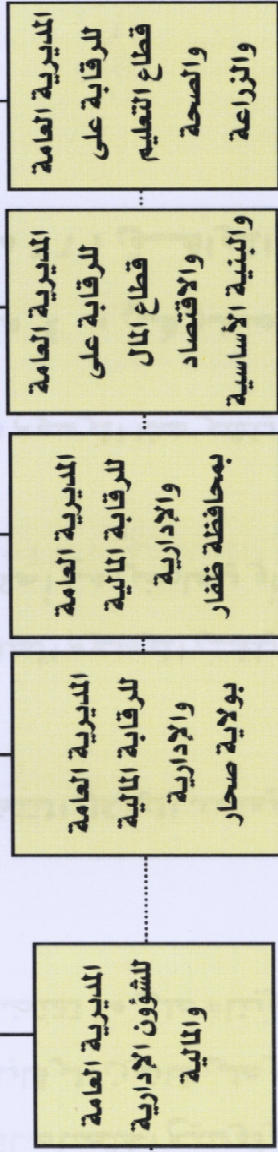 المديرية العامة
للرقابة على
قطاع التعليم
والصحة
والزراعة
المديرية العامة
للرقابة على
قطاع المال
والاقتصاد
والبنية الأساسية
المديرية العامة
للرقابة المالية
والإدارية
بمحافظة ظفار
المديرية العامة
للرقابة المالية
والإدارية
بولاية صحار
المديرية العامة
للشؤون الإدارية
والمالية